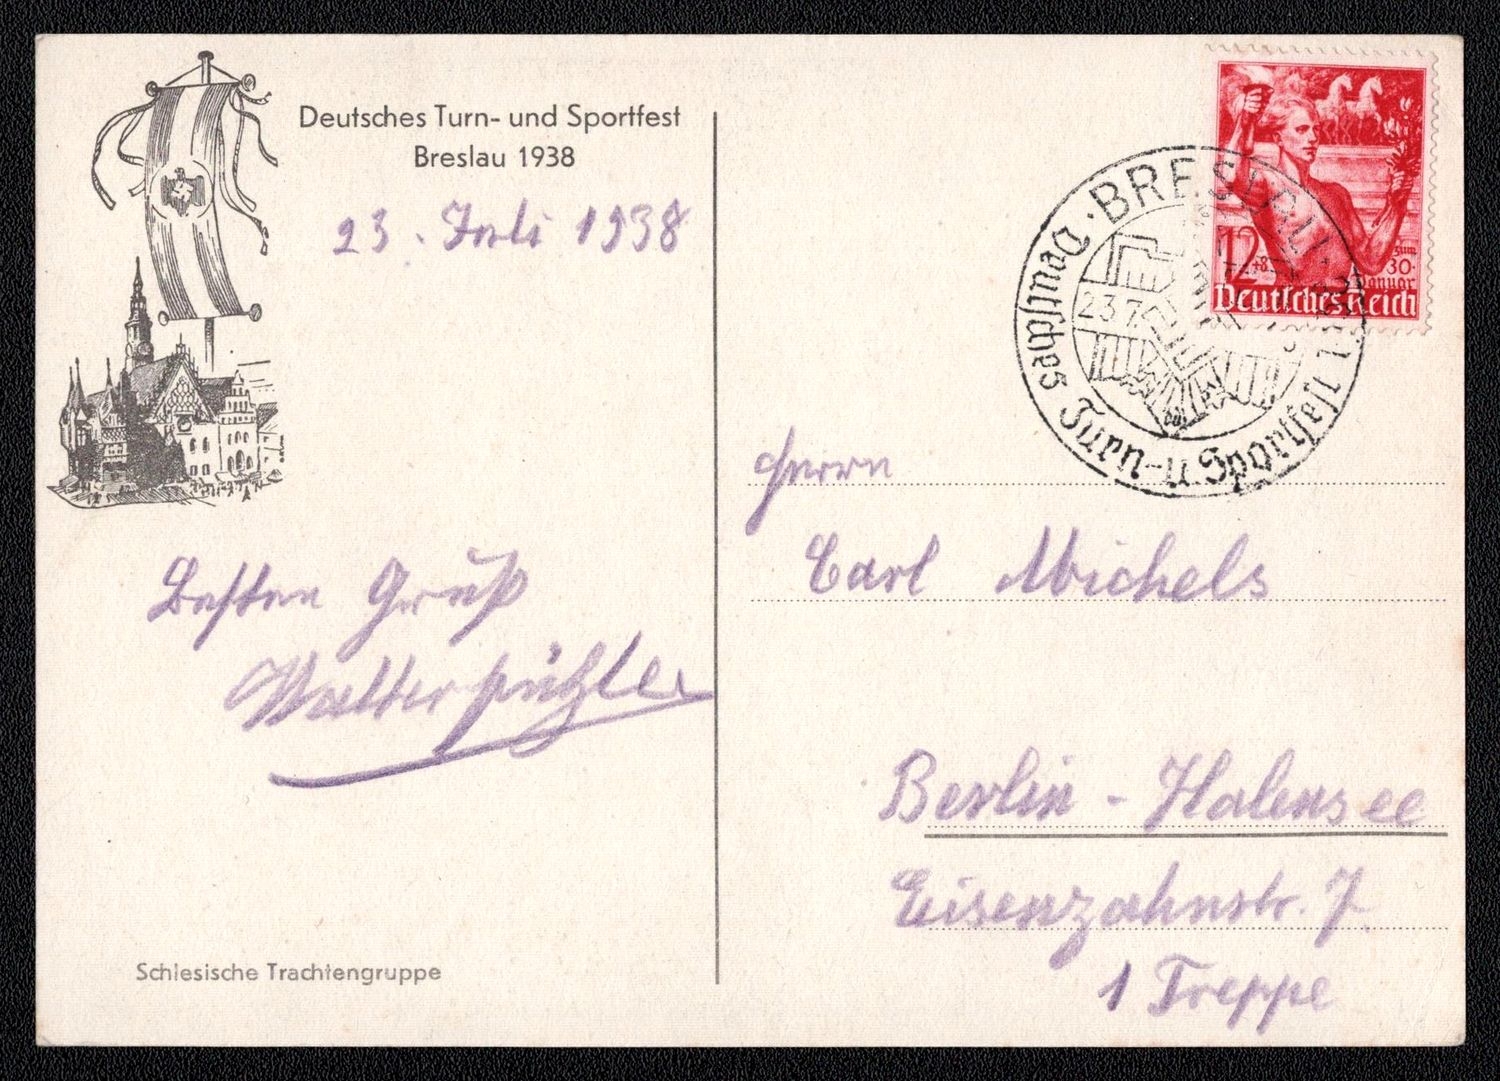 Deutsches Turn- und Sportfest
Breslau 1938
23. Juli 1938
Besten Gruß
Walter
Schlesische Trachtengruppe
12+8
zum
30.
Januar
Deutsches Reich
· BRESLAU ·
23.7.
Deutsches Turn- u. Sportfest
Herrn
Carl Michels
Berlin - Halensee
Eisenzahnstr. 7
1 Treppe